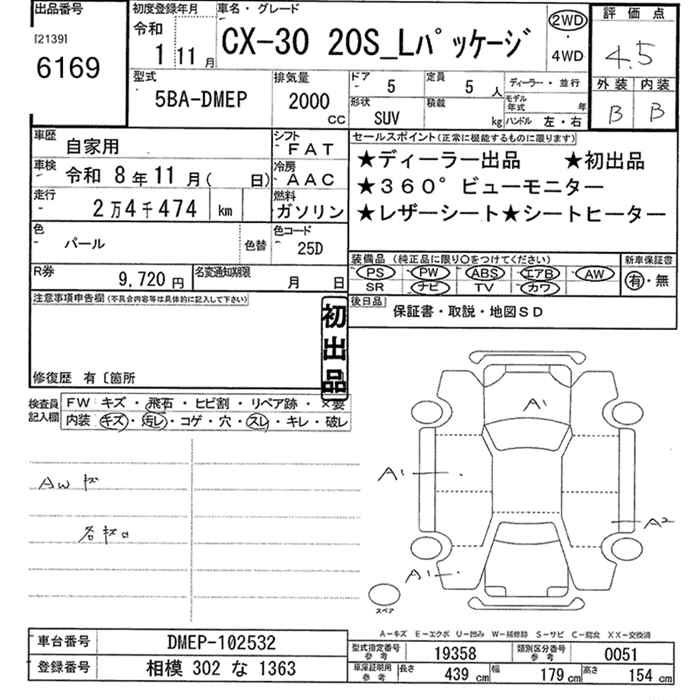 出品番号
[2139]
6169
初度登録年月
令和
1 11月
車名・グレード
CX-30 20S_Lパッケージ
2WD
4WD
評価点
4.5
外装 内装
B B
型式
5BA-DMEP
排気量
2000
CC
ドア
5
定員
5 人
ディーラー・並行
形状
SUV
積載
kg
モデル年式 年
ハンドル 左・右
車歴
自家用
シフト
FAT
車検
令和 8年11月( 日)
冷房
AAC
走行
2万4千474 km
燃料
ガソリン
色
パール
色替
色コード
25D
R券
9,720円
名変通知期限
月 日
セールスポイント(正常に機能するものに限ります)
★ディーラー出品 ★初出品
★360°ビューモニター
★レザーシート★シートヒーター
装備品(純正品に限り〇をつけてください)
新車保証書
PS PW ABS エアB AW
SR ナビ TV カワ
有・無
後日品
保証書・取説・地図SD
注意事項申告欄(不具合内容等は具体的に記入して下さい)
初出品
修復歴 有〔箇所
検査員記入欄
FW キズ・飛石・ヒビ割・リペア跡・×要
内装 キズ・汚レ・コゲ・穴・スレ・キレ・破レ
AW
A1
A1
A2
A1
スペア
A-キズ E-エクボ U-凹み W-補修跡 S-サビ C-腐食 XX-交換済
車台番号
DMEP-102532
登録番号
相模 302 な 1363
型式指定番号
参考
19358
類別区分番号
参考
0051
車庫証明用
参考
長さ
439 cm
幅
179 cm
高さ
154 cm